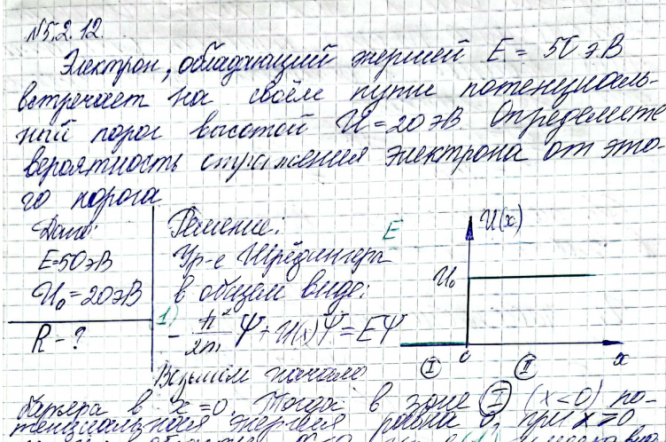 №5.2.12.
Электрон, обладающий энергией E = 50 эВ
встречает на своём пути потенциаль-
ный порог высотой U = 20 эВ Определите
вероятность отражения электрона от это-
го порога
Дано:
E=50эВ
U₀=20эВ
R - ?
Решение:
Ур-е Шрёдингера
в общем виде:
1)
- ħ²/2m Ψ + U(x)Ψ = EΨ
Возьмём начало
E
U(x)
U₀
0
x
I
II
барьера в x=0. Тогда в зоне I (x<0) по-
тенциальная энергия равна 0, при x≥0